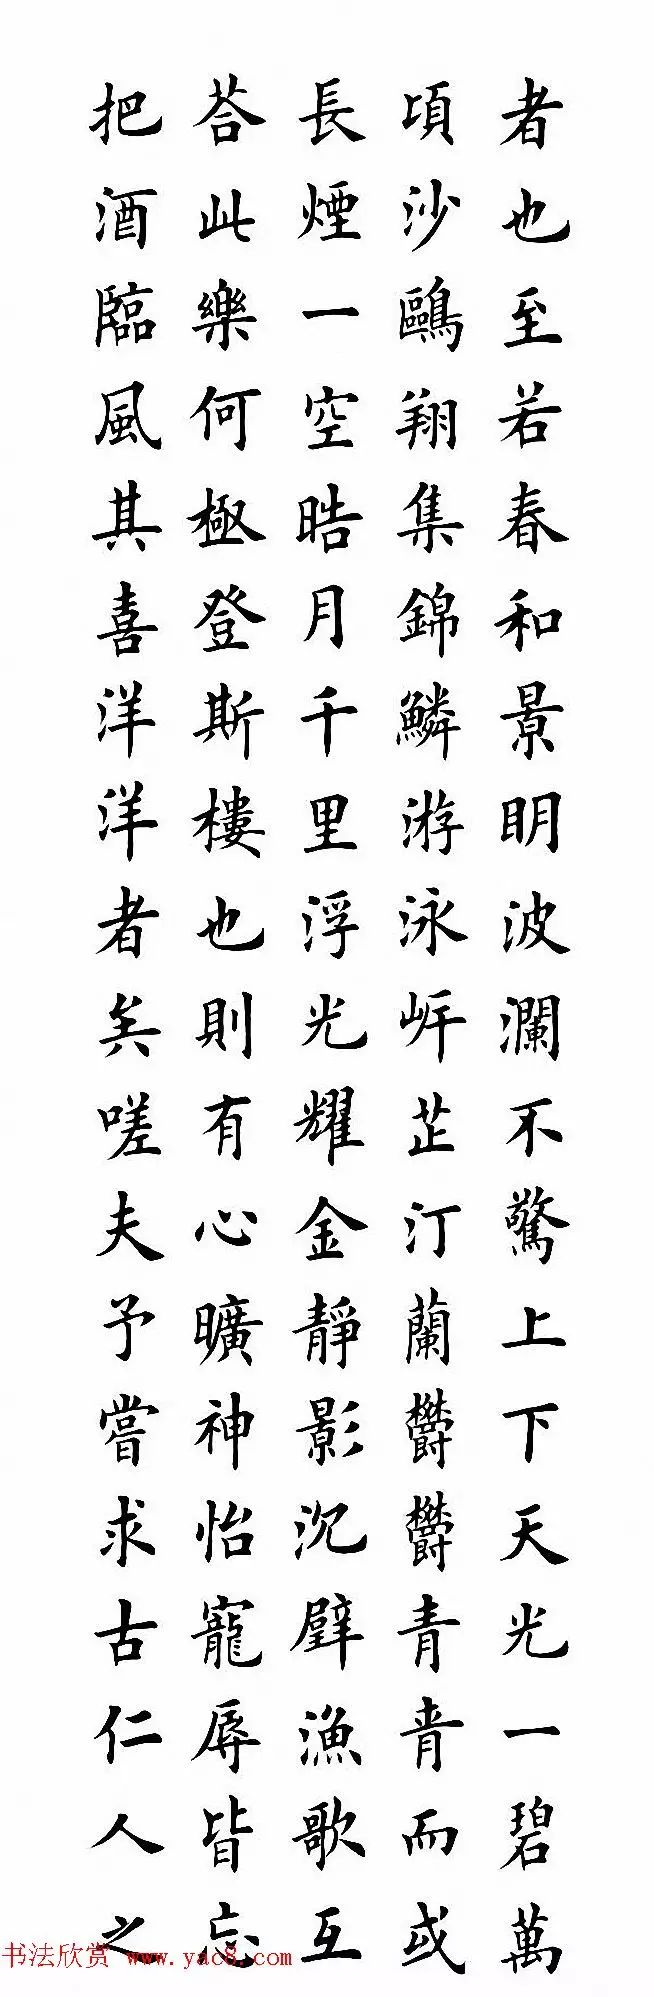 者也至若春和景明波瀾不驚上下天光一碧萬
頃沙鷗翔集錦鱗游泳岸芷汀蘭欝欝青青而或
長煙一空晧月千里浮光耀金靜影沉璧漁歌互
荅此樂何極登斯樓也則有心曠神怡寵辱皆忘
把酒臨風其喜洋洋者矣嗟夫予嘗求古仁人之
书法欣赏 www.yac8.com